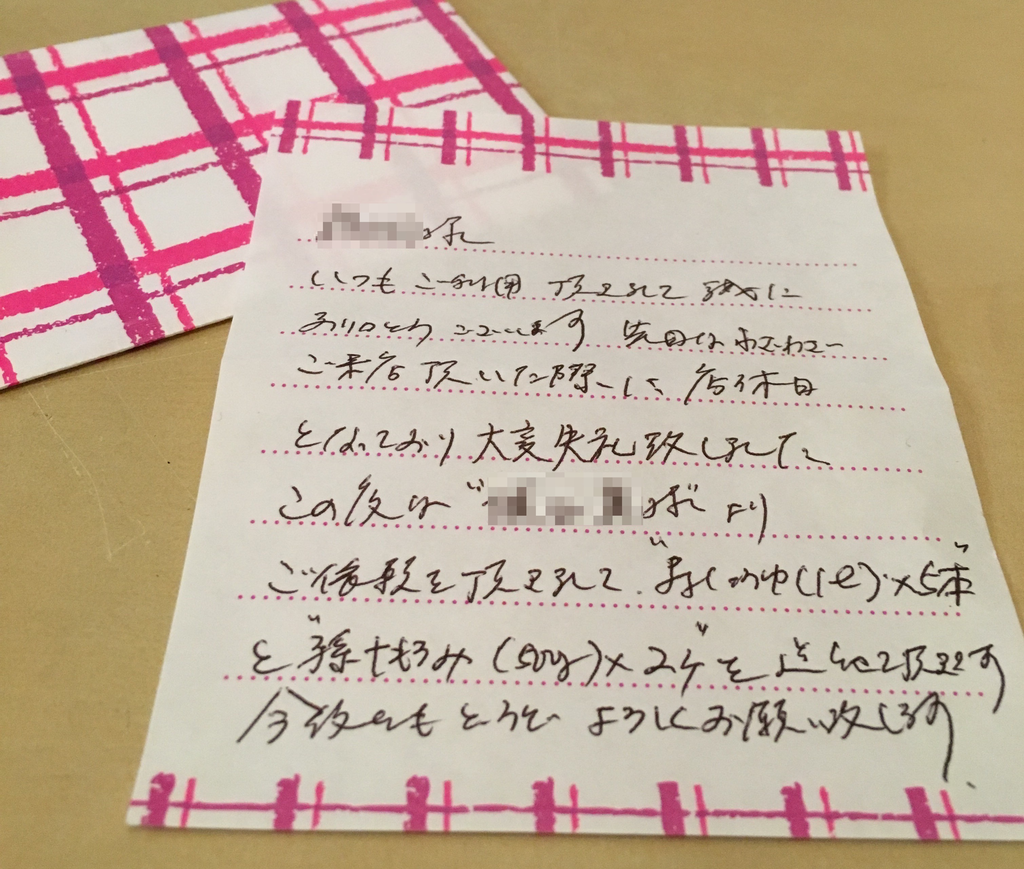 様
いつもご利用頂きまして誠に
ありがとうございます 先日はわざわざ
ご来店頂いた際に 店休日
となっており大変失礼致しました
この度は " 様" より
ご依頼を頂きまして (1ℓ)×5本"
と (500g)×2ケ"を 送らせて頂きます
今後ともどうぞ よろしくお願い致します